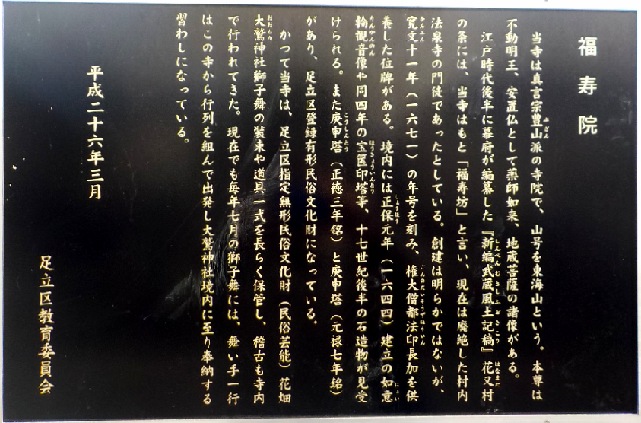 福寿院
当寺は真言宗豊山派の寺院で、山号を東海山という。本尊は
不動明王、安置仏として薬師如来、地蔵菩薩の諸像がある。
江戸時代後半に幕府が編纂した『新編武蔵風土記稿』花又村
の条には、当寺はもと「福寿坊」と言い、現在は廃絶した村内
法泉寺の門徒であったとしている。創建は明らかではないが、
寛文十一年(一六七一)の年号を刻み、権大僧都法印長加を供
養した位牌がある。境内には正保元年(一六四四)建立の如意
輪観音像や同四年の宝篋印塔等、十七世紀後半の石造物が見受
けられる。また庚申塔(正徳三年銘)と庚申塔(元禄七年銘)
があり、足立区登録有形民俗文化財になっている。
かつて当寺は、足立区指定無形民俗文化財(民俗芸能)花畑
大鷲神社獅子舞の装束や道具一式を長らく保管し、稽古も寺内
で行われてきた。現在でも毎年七月の獅子舞には、舞い手一行
はこの寺から行列を組んで出発し大鷲神社境内に至り奉納する
習わしになっている。
平成二十六年三月
足立区教育委員会